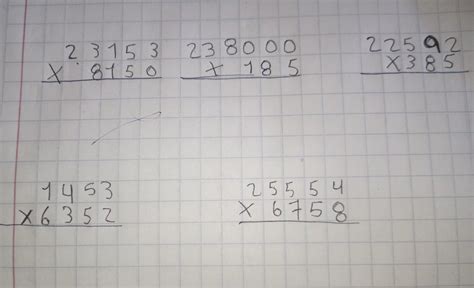 23153
x 8150
238000
x 185
22592
x385
1453
x6352
25554
x 6758